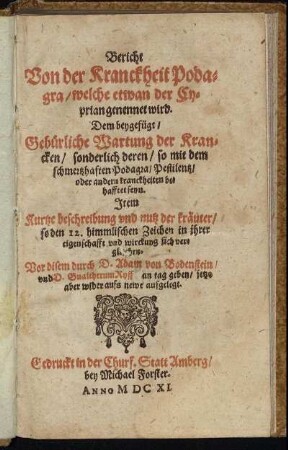 Bericht
Von der Kranckheit Poda-
gra/ welche etwan der Cy-
prian genennet wird.
Dem beygefügt/
Gebürliche Wartung der Kran-
cken/ sonderlich deren/ so mit dem
schmertzhafften Podagra/ Pestilentz/
oder andern kranckheiten be-
hafftet seyn.
Item
Kurtze beschreibung vnd nutz der kräuter/
so den 12. himmlischen Zeichen in ihrer
eigenschafft vnd wirckung sich ver-
Vor disem durch D. Adam von Bodenstein/
vnd D. Gualtherum Ryff an tag geben/ jetzt
aber wider auffs newe auffgelegt.
Gedruckt in der Churf. Statt Amberg/
bey Michael Forster.
ANNO M DC XI.